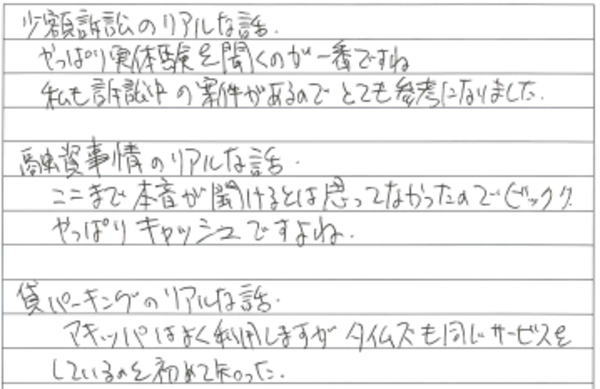 少額訴訟のリアルな話.
やっぱり実体験を聞くのが一番ですね
私も訴訟中の案件があるのでとても参考になりました.
融資事情のリアルな話.
ここまで本音が聞けるとは思ってなかったのでビックリ
やっぱりキャッシュですよね.
貸パーキングのリアルな話.
アキッパはよく利用しますがタイムズも同じサービスを
しているのを初めて知った.